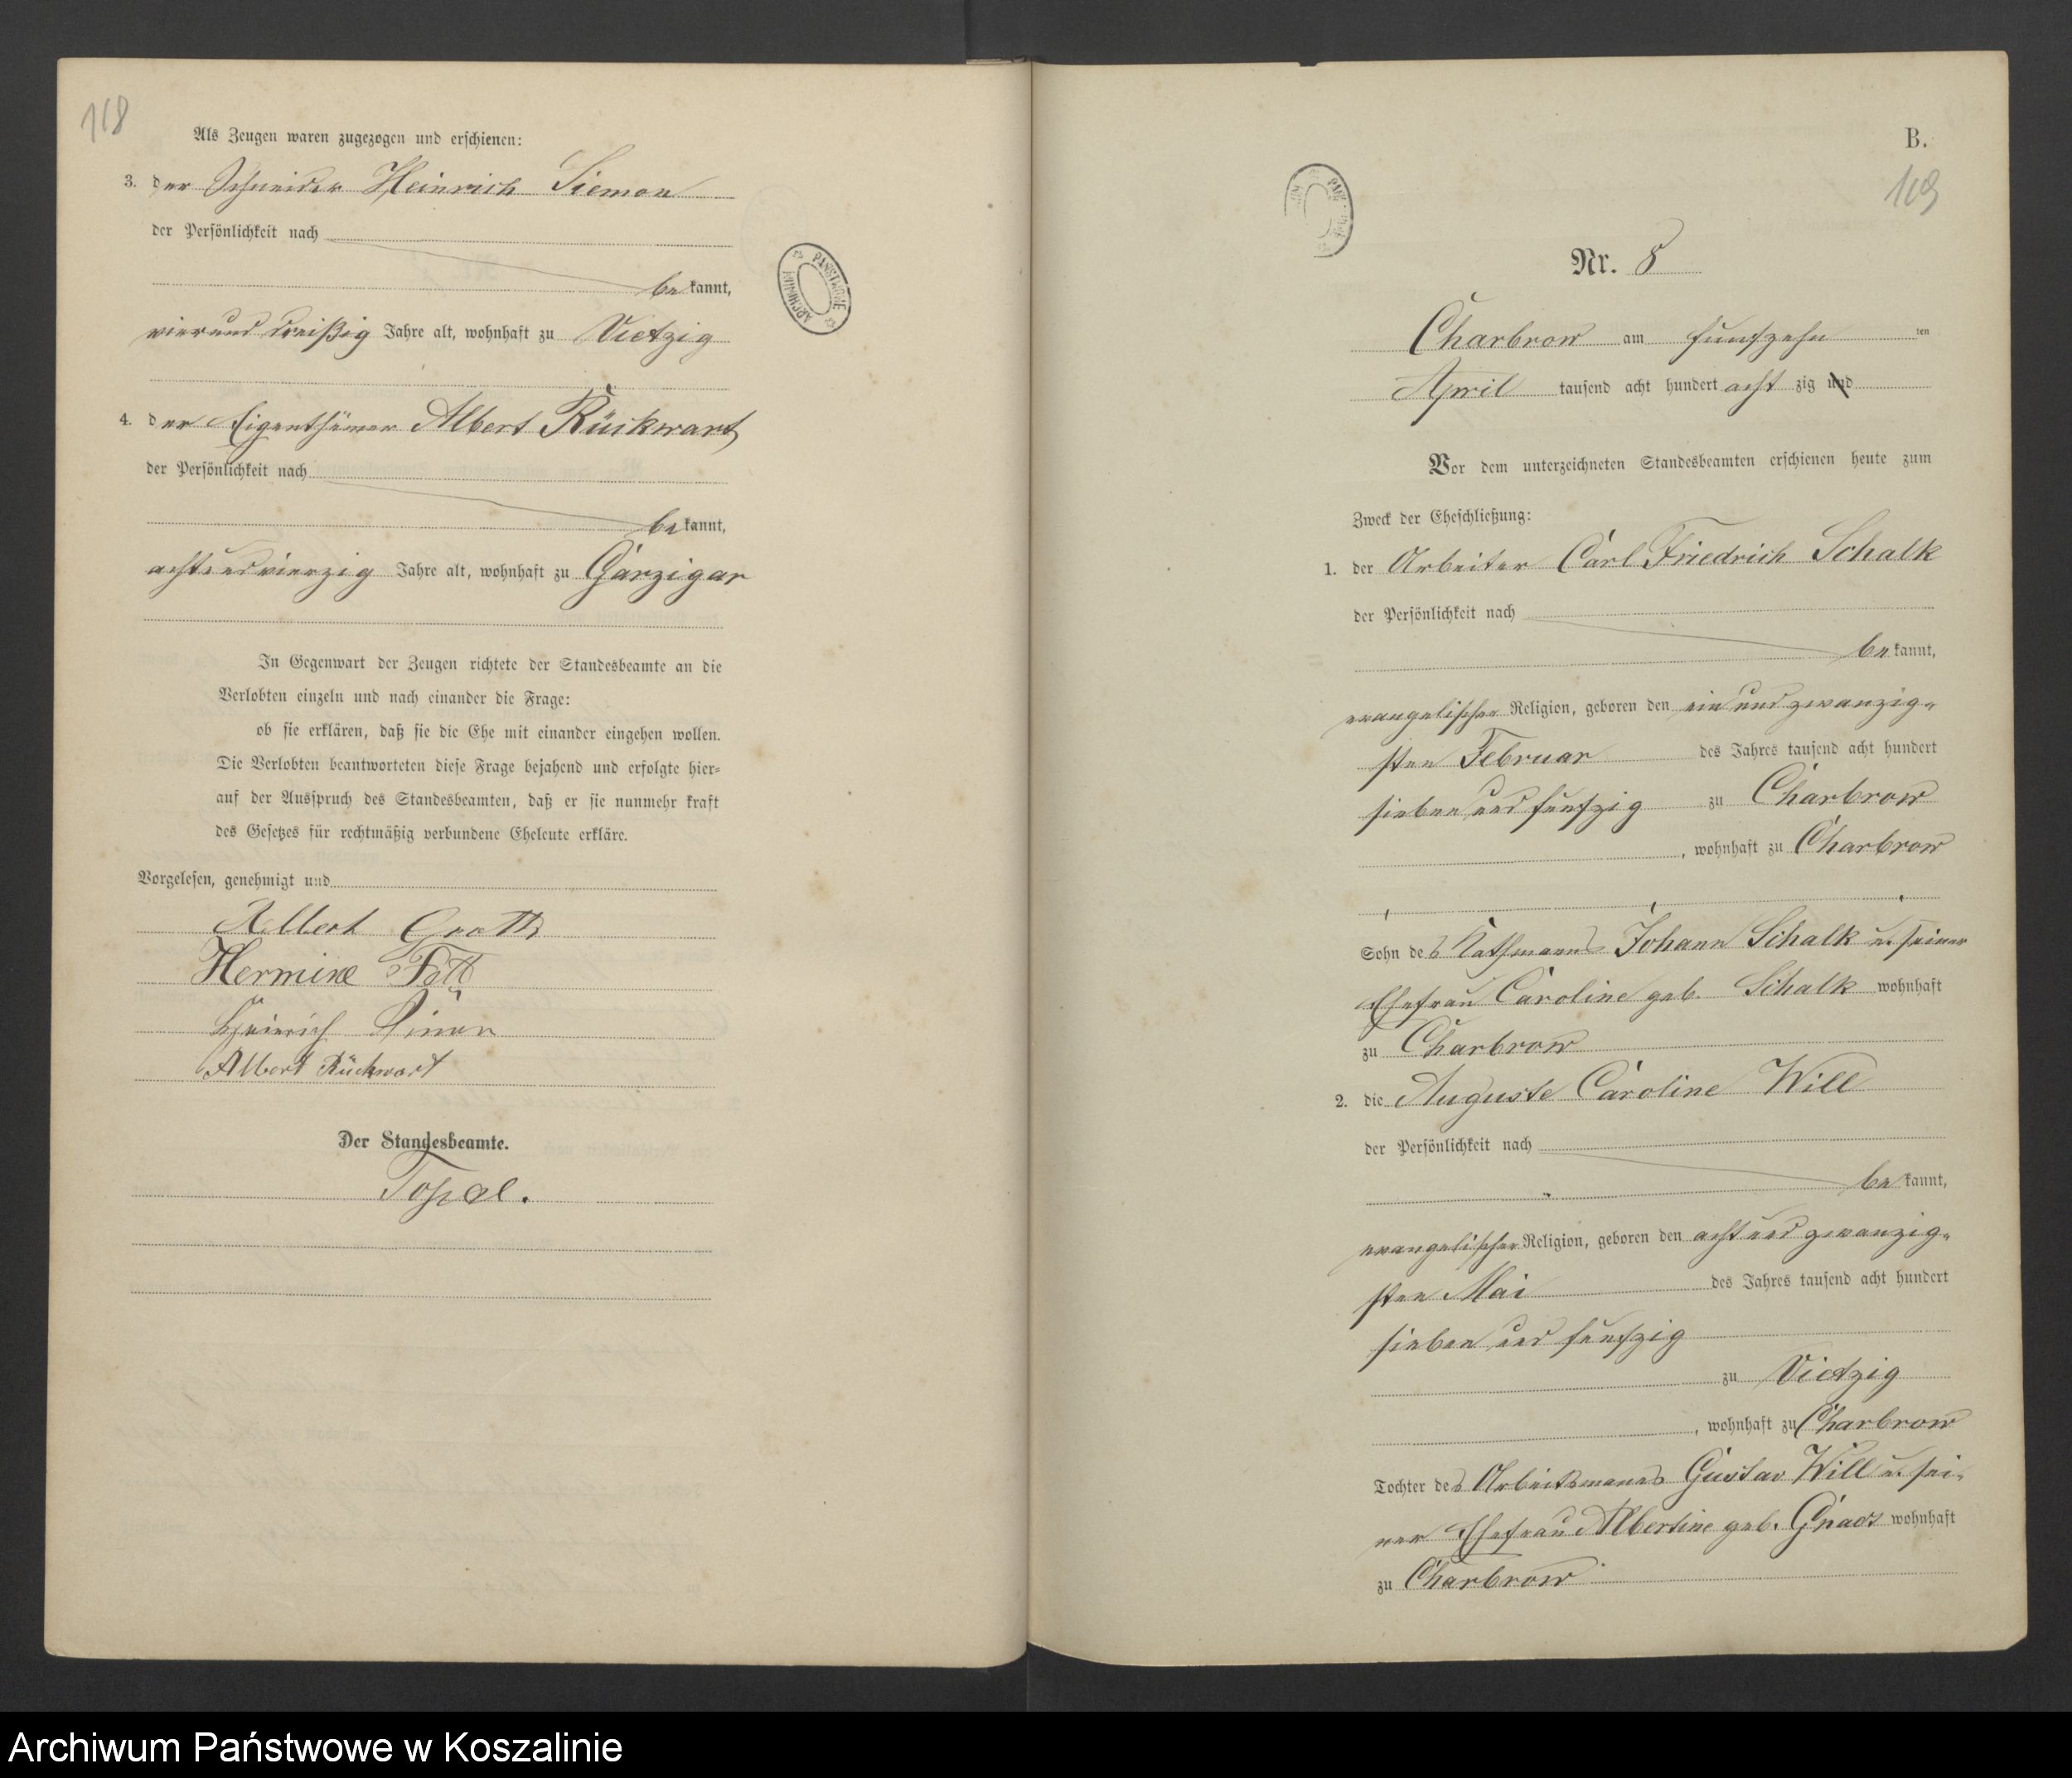 118
Als Zeugen waren zugezogen und erschienen:
3. der Schneider Heinrich Siemon
der Persönlichkeit nach
bekannt,
vierund dreißig Jahre alt, wohnhaft zu Vietzig
4. der Eigenthümer Albert Rückwart
der Persönlichkeit nach
bekannt,
achtundvierzig Jahre alt, wohnhaft zu Garzigar
In Gegenwart der Zeugen richtete der Standesbeamte an die
Verlobten einzeln und nach einander die Frage:
ob sie erklären, daß sie die Ehe mit einander eingehen wollen.
Die Verlobten beantworteten diese Frage bejahend und erfolgte hier-
auf der Ausspruch des Standesbeamten, daß er sie nunmehr kraft
des Gesetzes für rechtmäßig verbundene Eheleute erkläre.
Vorgelesen, genehmigt und
Albert Groth
Hermine
Heinrich Simon
Albert Rückwart
Der Standesbeamte.
ARCHIWUM PAŃSTWOWE
B.
119
Nr. 8
Charbrow am funfzehn ten
April tausend acht hundert acht zig und
Vor dem unterzeichneten Standesbeamten erschienen heute zum
Zweck der Eheschließung:
1. der Arbeiter Carl Friedrich Schalk
der Persönlichkeit nach
bekannt,
evangelischer Religion, geboren den ein und zwanzig-
sten Februar des Jahres tausend acht hundert
sieben und funfzig zu Charbrow
, wohnhaft zu Charbrow
Sohn des Kathmanns Johann Schalk u. seiner
Ehefrau Caroline geb. Schalk wohnhaft
zu Charbrow
2. die Auguste Caroline Will
der Persönlichkeit nach
bekannt,
evangelischer Religion, geboren den acht und zwanzig-
sten Mai des Jahres tausend acht hundert
sieben und funfzig
zu Vietzig
, wohnhaft zu Charbrow
Tochter des Arbeitsmanns Gustav Will u. sei-
ner Ehefrau Albertine geb. wohnhaft
zu Charbrow
Archiwum Państwowe w Koszalinie